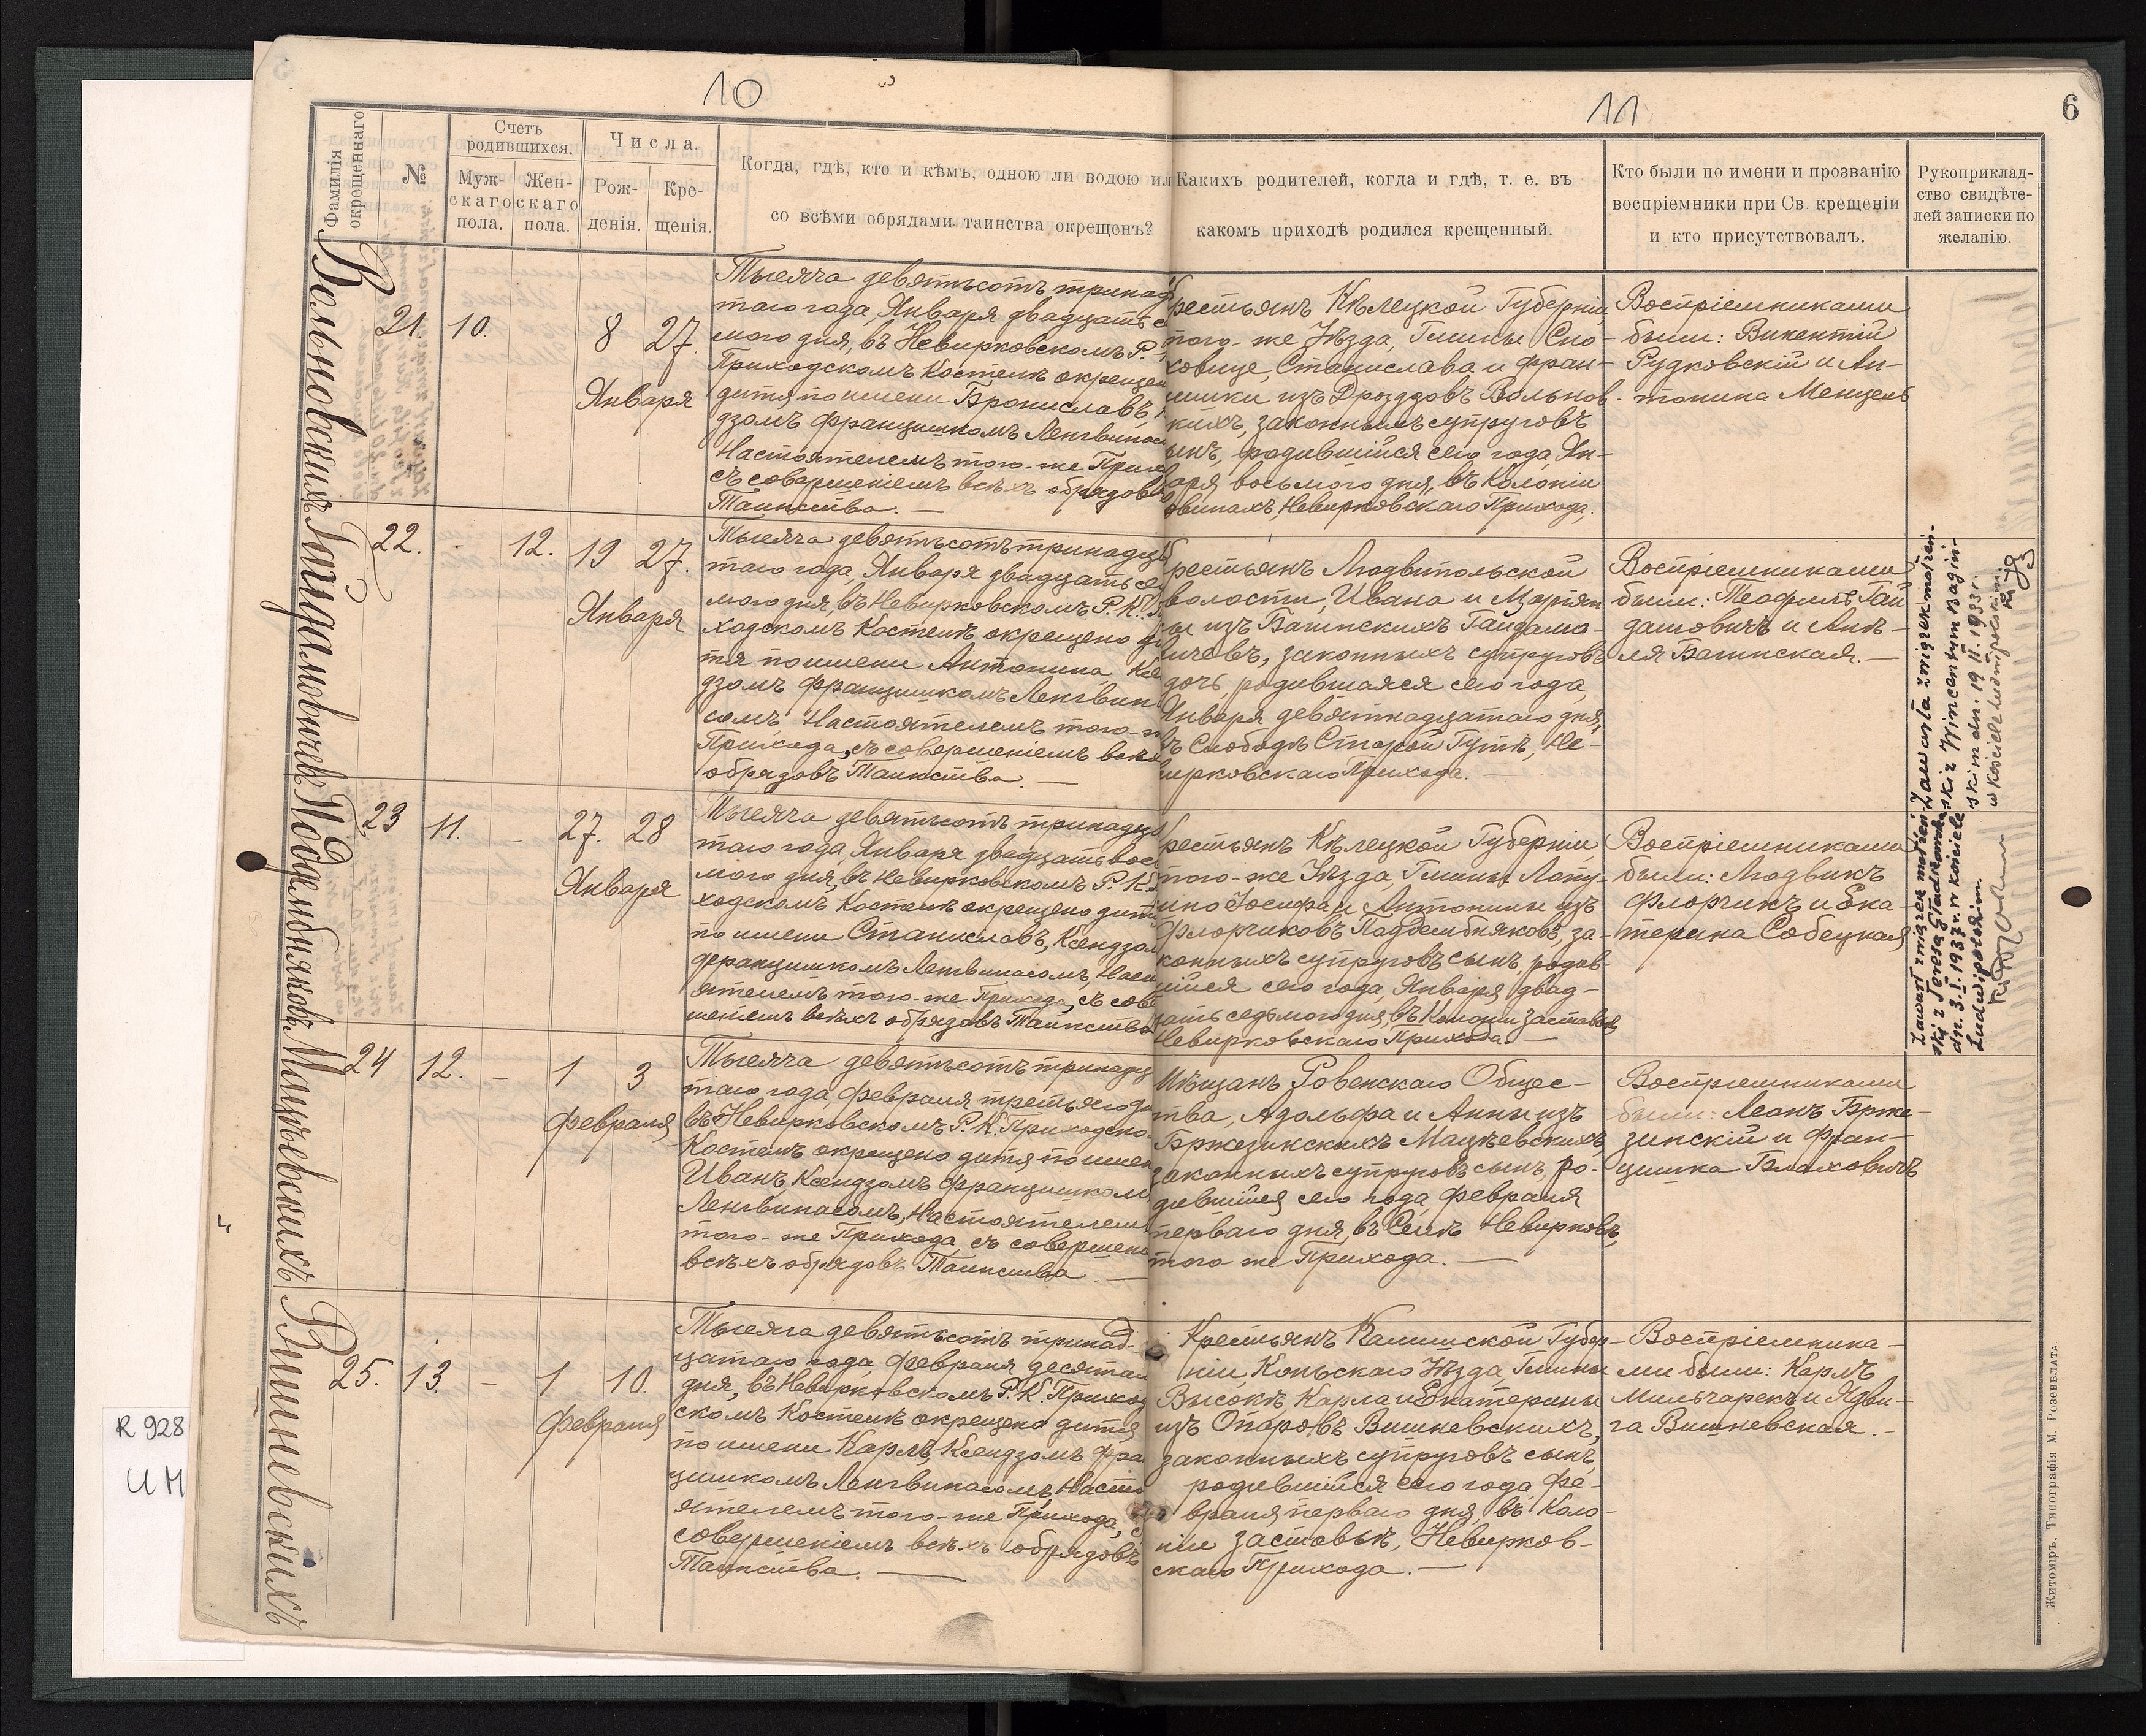 10
11
6
Фамилія окрещеннаго
№
Счетъ родившихся.
Муж-
скаго
пола.
Жен-
скаго
пола.
Числа.
Рож-
денія.
Кре-
щенія.
Когда, гдѣ, кто и кѣмъ, одною ли водою ил
со всѣми обрядами таинства окрещенъ?
Какихъ родителей, когда и гдѣ, т. е. въ
какомъ приходѣ родился крещенный.
Кто были по имени и прозванію
воспріемники при Св. крещеніи
и кто присутствовалъ.
Рукоприклад-
ство свидѣте-
лей записки по
желанію.
21. 10. 8 27.
Января
Тысяча девятьсотъ тринад
таго года, Января двадцать с
мого дня, въ Невирковскомъ Р.
Приходскомъ Костелѣ окрещен
дитя по имени Брониславъ,
дзомъ Францишкомъ Ленгвинас
Настоятелемъ того-же Прих
съ совершеніемъ всѣхъ обрядовъ
Таинства. —
рестьянъ Кѣлецкой Губерніи,
того-же Уѣзда, Гмины Сно-
ховице, Станислава и Фран-
цишки изъ Дроздовъ Вольнов-
кихъ, законныхъ супруговъ
ынъ, родившійся сего года, Ян-
аря восьмого дня, въ Колоніи
овинахъ, Невирковскаго Прихода.
Воспріемниками
были: Викентій
Рудковскій и Ан-
тонина Менцель
22. - 12. 19 27.
Января
Тысяча девятьсотъ тринадц
таго года, Января двадцать се
мого дня, въ Невирковскомъ Р. К.
ходскомъ Костелѣ окрещено д
тя по имени Антонина, Ксе
дзомъ Францишкомъ Ленгвин
сомъ, Настоятелемъ того-ж
Прихода, съ совершеніемъ всѣх
обрядовъ Таинства. —
рестьянъ Людвипольской
волости, Ивана и Маріян
ы изъ Багинскихъ Гайдамо-
ичевъ, законныхъ супруговъ
дочь, родившаяся сего года,
Января девятнадцатаго дня,
ъ Слободѣ Старой Гутѣ, Не-
ирковскаго Прихода. —
Воспріемниками
были: Теофилъ Гай
дамовичъ и Анѣ-
ля Багинская. —
23 11. - 27. 28
Января
Тысяча девятьсотъ тринадца
таго года, Января двадцать вос
мого дня, въ Невирковскомъ Р. К.
ходскомъ Костелѣ окрещено дитя
по имени Станиславъ, Ксендзом
Францишкомъ Ленгвинасомъ, Наст
ятелемъ того-же Прихода, съ сове
шеніемъ всѣхъ обрядовъ Таинства
рестьянъ Кѣлецкой Губерніи
того-же Уѣзда, Гмины Лопу-
шно Іосифа и Антонины изъ
Флорчиковъ Подзембняковъ, за-
конныхъ супруговъ сынъ, родив-
шійся сего года, Января двад-
цать седьмого дня, въ Колоніи Заставье
Невирковскаго Прихода. —
Воспріемниками
были: Людвикъ
Флорчикъ и Ека-
терина Собецкая
24 12. - 1 3
Февраля
Тысяча девятьсотъ тринадц
таго года, Февраля третьяго д
въ Невирковскомъ Р. К. Приходско
Костелѣ окрещено дитя по имен
Иванъ, Ксендзомъ Францишком
Ленгвинасомъ, Настоятелем
того-же Прихода, съ совершен
всѣхъ обрядовъ Таинства. —
Мѣщанъ Ровенскаго Общес-
тва, Адольфа и Анны изъ
Бржезинскихъ Мацѣевскихъ,
законныхъ супруговъ сынъ, ро-
дившійся сего года, Февраля
перваго дня, въ Селѣ Невирковъ,
того же Прихода. —
Воспріемниками
были: Леонъ Брже-
зинскій и Фран-
цишка Блаховичъ
25. 13. - 1 10.
Февраля
Тысяча девятьсотъ тринад-
цатаго года, Февраля десятаг
дня, въ Невирковскомъ Р. К. Приход
скомъ Костелѣ окрещено дитя
по имени Карлъ, Ксендзомъ Фра
цишкомъ Ленгвинасомъ, Насто
ятелемъ того-же Прихода, с
совершеніемъ всѣхъ обрядовъ
Таинства. —
Крестьянъ Калишской Губер-
ніи, Коньскаго Уѣзда, Гмины
Высоке, Карла и Екатерины
изъ Опаровъ Вишневскихъ,
законныхъ супруговъ сынъ,
родившійся сего года, Фе-
враля перваго дня, въ Коло-
ніи Заставье, Невирков-
скаго Прихода. —
Воспріемника-
ми были: Карлъ
Мильчарекъ и Ядви-
га Вишневская. —
Вольновскій
Гайдамовичъ
Подзембняковъ
Мацѣевскихъ
Вишневскихъ
Zawarła związek małżeń-
ski z Wincentym Bagiń-
skim dn. 19.II.1933 r.
w kościele ludwipolskim.
Zawarł związek małżeń-
ski z Teresą
dn. 3.I.1937 r. w kościele
Ludwipolskim.
R 928
U M
Житоміръ, Типографія М. Розенблата.